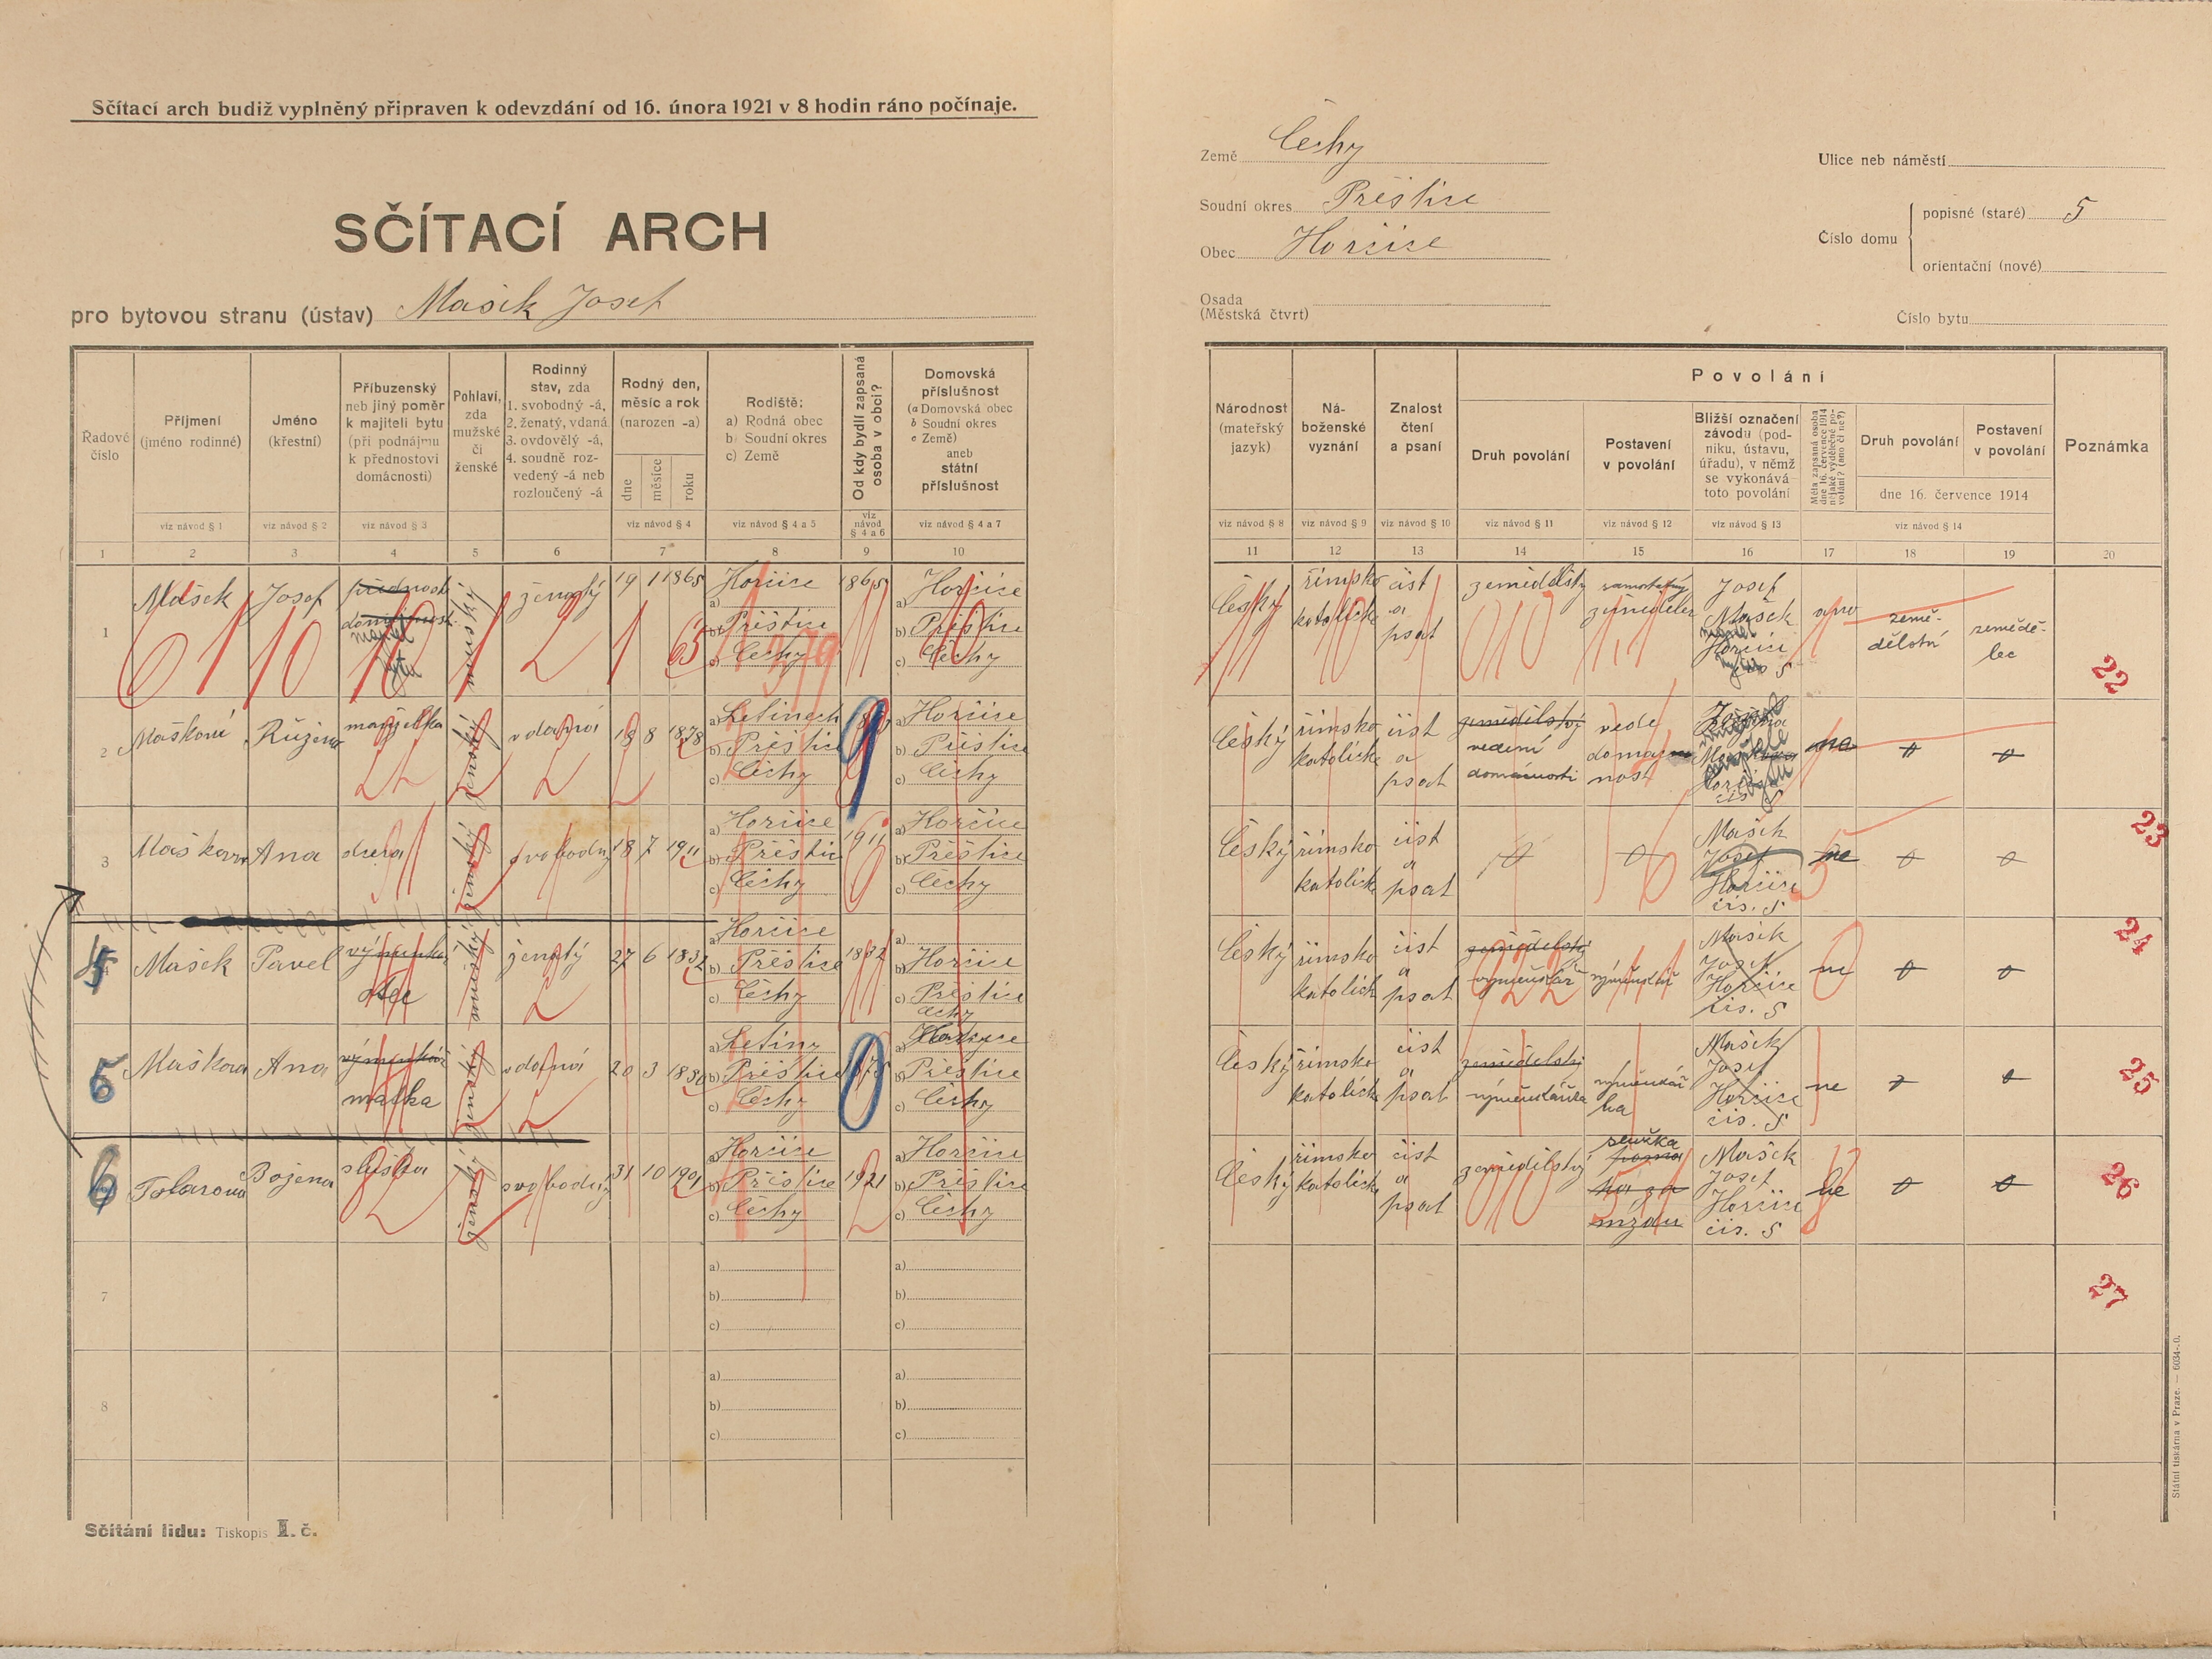 Sčítací arch budiž vyplněný připraven k odevzdání od 16. února 1921 v 8 hodin ráno počínaje.
SČÍTACÍ ARCH
pro bytovou stranu (ústav) Mašek Josef
Země Čechy
Soudní okres Přeštice
Obec Horšice
Osada
(Městská čtvrt)
Ulice neb náměstí
Číslo domu
popisné (staré) 5
orientační (nové)
Číslo bytu
Řadové číslo
Příjmení (jméno rodinné)
viz návod § 1
Jméno (křestní)
viz návod § 2
Příbuzenský neb jiný poměr k majiteli bytu (při podnájmu k přednostovi domácnosti)
viz návod § 3
Pohlaví, zda mužské či ženské
Rodinný stav, zda 1. svobodný -á, 2. ženatý, vdaná 3. ovdovělý -á, 4. soudně rozvedený -á neb rozloučený -á
Rodný den, měsíc a rok (narozen -a)
dne měsíce roku
viz návod § 4
Rodiště: a) Rodná obec b) Soudní okres c) Země
viz návod § 4 a 5
Od kdy bydlí zapsaná osoba v obci?
viz návod § 4 a 6
Domovská příslušnost (a Domovská obec b Soudní okres c Země) aneb státní příslušnost
viz návod § 4 a 7
Národnost (mateřský jazyk)
viz návod § 8
Náboženské vyznání
viz návod § 9
Znalost čtení a psaní
viz návod § 10
Povolání
Druh povolání
viz návod § 11
Postavení v povolání
viz návod § 12
Bližší označení závodu (podniku, ústavu, úřadu), v němž se vykonává toto povolání
viz návod § 13
Měla zapsaná osoba dne 16. července 1914 nějaké výdělečné povolání? (ano či ne?)
Druh povolání
Postavení v povolání
dne 16. července 1914
viz návod § 14
Poznámka
1 2 3 4 5 6 7 8 9 10 11 12 13 14 15 16 17 18 19 20
1 Mašek Josef přednosta domácnosti majitel bytu mužský ženatý 19 1 1865 a) Horšice b) Přeštice c) Čechy 1865 a) Horšice b) Přeštice c) Čechy
Český římsko katolické číst a psat zemědělský samostatný zemědělec Josef Mašek Horšice čís 5 ano zemědělství zemědělec
22
2 Mašková Růžena manželka ženský vdaná 8 1878 a) Letinech b) Přeštice c) Čechy a) Horšice b) Přeštice c) Čechy
Český římsko katolické číst a psat zemědělský vedení domácnosti vede domacnost ne 0 0
23
3 Maškova Ana dcera ženský svobodný 18 7 1911 a) Horšice b) Přeštice c) Čechy 1911 a) Horšice b) Přeštice c) Čechy
Český římsko katolické číst a psat 0 0 Mašek Josef Horšice čis. 5 ne 0 0
24
5 Mašek Pavel otec mužský ženatý 27 6 1832 a) Horšice b) Přeštice c) Čechy 1832 a) b) Horšice c) Přeštice Čechy
Český římsko katolick číst a psat zemědelský výměnkář výměnkář Mašek Josef Horšice čis. 5 ne 0 0
25
6 Maškova Ana matka ženský vdaná 20 3 a) Letiny b) Přeštice c) Čechy a) Horšice b) Přeštice c) Čechy
Český římsko katolické číst a psat zemědelský výměnkářka výměnkářka Mašek Josef Horšice čis. 5 ne 0 0
26
6 Tolarova Božena služka ženský svobodný 31 10 1901 a) Horšice b) Přeštice c) Čechy 1921 a) Horšice b) Přeštice c) Čechy
Český římsko katolické číst a psat zemědělský služka na za mzdu Mašek Josef Horšice čis. 5 ne 0 0
27
7 a) b) c) a) b) c)
8 a) b) c) a) b) c)
Sčítání lidu: Tiskopis I. č.
Státní tiskárna v Praze. — 6034-20.